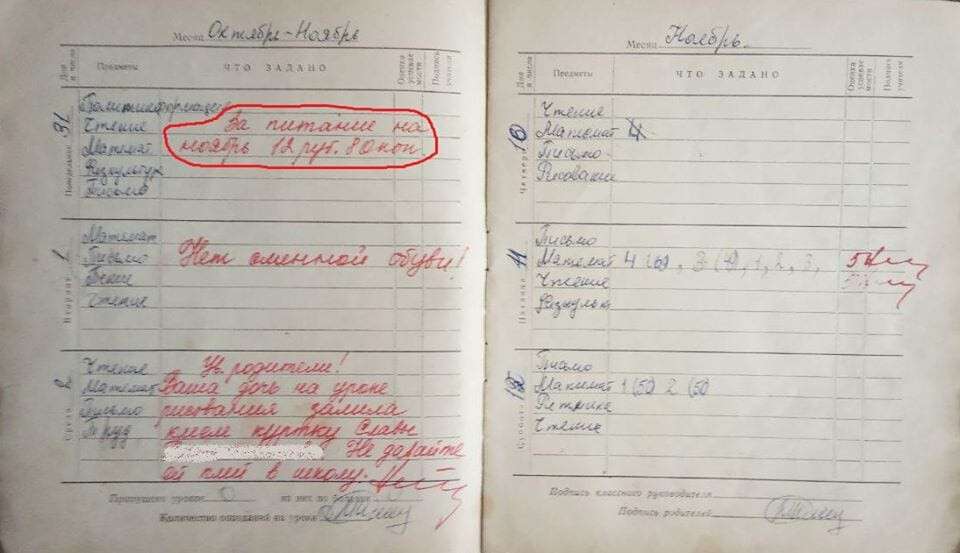 Месяц Октябрь-Ноябрь
Дни и числа Предметы ЧТО ЗАДАНО Оценка успеваемости Подпись учителя
Понедельник 31
Политинформация
Чтение За питание на
Математ ноябрь 12 руб. 80 коп
Физкультура
Письмо
Вторник 1
Математ
Письмо Нет сменной обуви!
Пение
Чтение
Среда 2
Чтение Ув. родители!
Математ Ваша дочь на уроке
Письмо рисования залила
Труд клеем куртку Славы
Не давайте
ей клей в школу.
Пропущено уроков 0 из них по болезни
Количество опозданий на уроки
Месяц Ноябрь.
Дни и числа Предметы ЧТО ЗАДАНО Оценка успеваемости Подпись учителя
Четверг 10
Чтение
Математ 4
Письмо
Рисование
Пятница 11
Письмо
Математ 4 (6), 3 (4), 1, 2, 3, 5
Чтение
Физкульт
Суббота 12
Письмо
Математ 1 (50) 2 (50
Ритмика
Чтение
Подпись классного руководителя
Подпись родителей